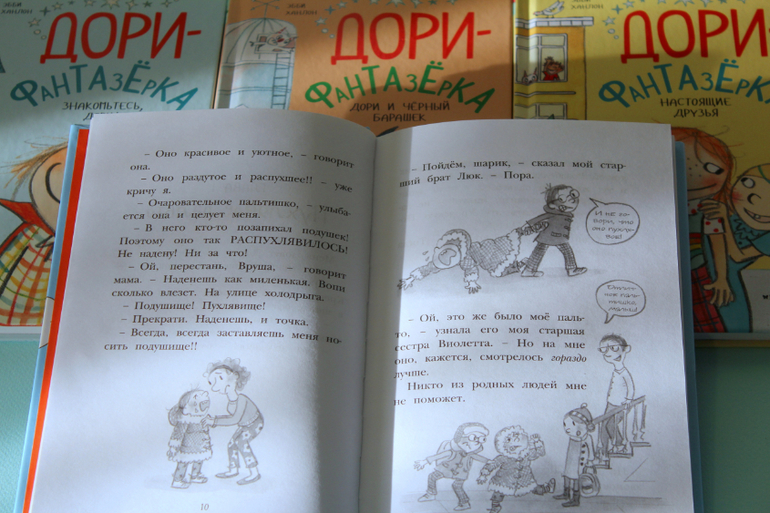 ДОРИ-
ФАНТАЗЁРКА
ЗНАКОМЬТЕСЬ,
ДОРИ-
ФАНТАЗЁРКА
ДОРИ И ЧЁРНЫЙ
БАРАШЕК
ДОРИ-
ФАНТАЗЁРКА
НАСТОЯЩИЕ
ДРУЗЬЯ
– Оно красивое и уютное, – говорит
она.
– Оно раздутое и распухшее!! – уже
кричу я.
– Очаровательное пальтишко, – улыба-
ется она и целует меня.
– В него кто-то позапихал подушек!
Поэтому оно так РАСПУХЛЯВИЛОСЬ!
Не надену! Ни за что!
– Ой, перестань, Вруша, – говорит
мама. – Наденешь как миленькая. Вопи
сколько влезет. На улице холодрыга.
– Подушище! Пухлявище!
– Прекрати. Наденешь, и точка.
– Всегда, всегда заставляешь меня но-
сить подушище!!
10
– Пойдём, шарик, – сказал мой стар-
ший брат Люк. – Пора.
И не го-
вори, что
оно пухля-
вое!
– Ой, это же было моё паль-
то, – узнала его моя старшая
сестра Виолетта. – Но на мне
оно, кажется, смотрелось гораздо
лучше.
Никто из родных людей мне
не поможет.